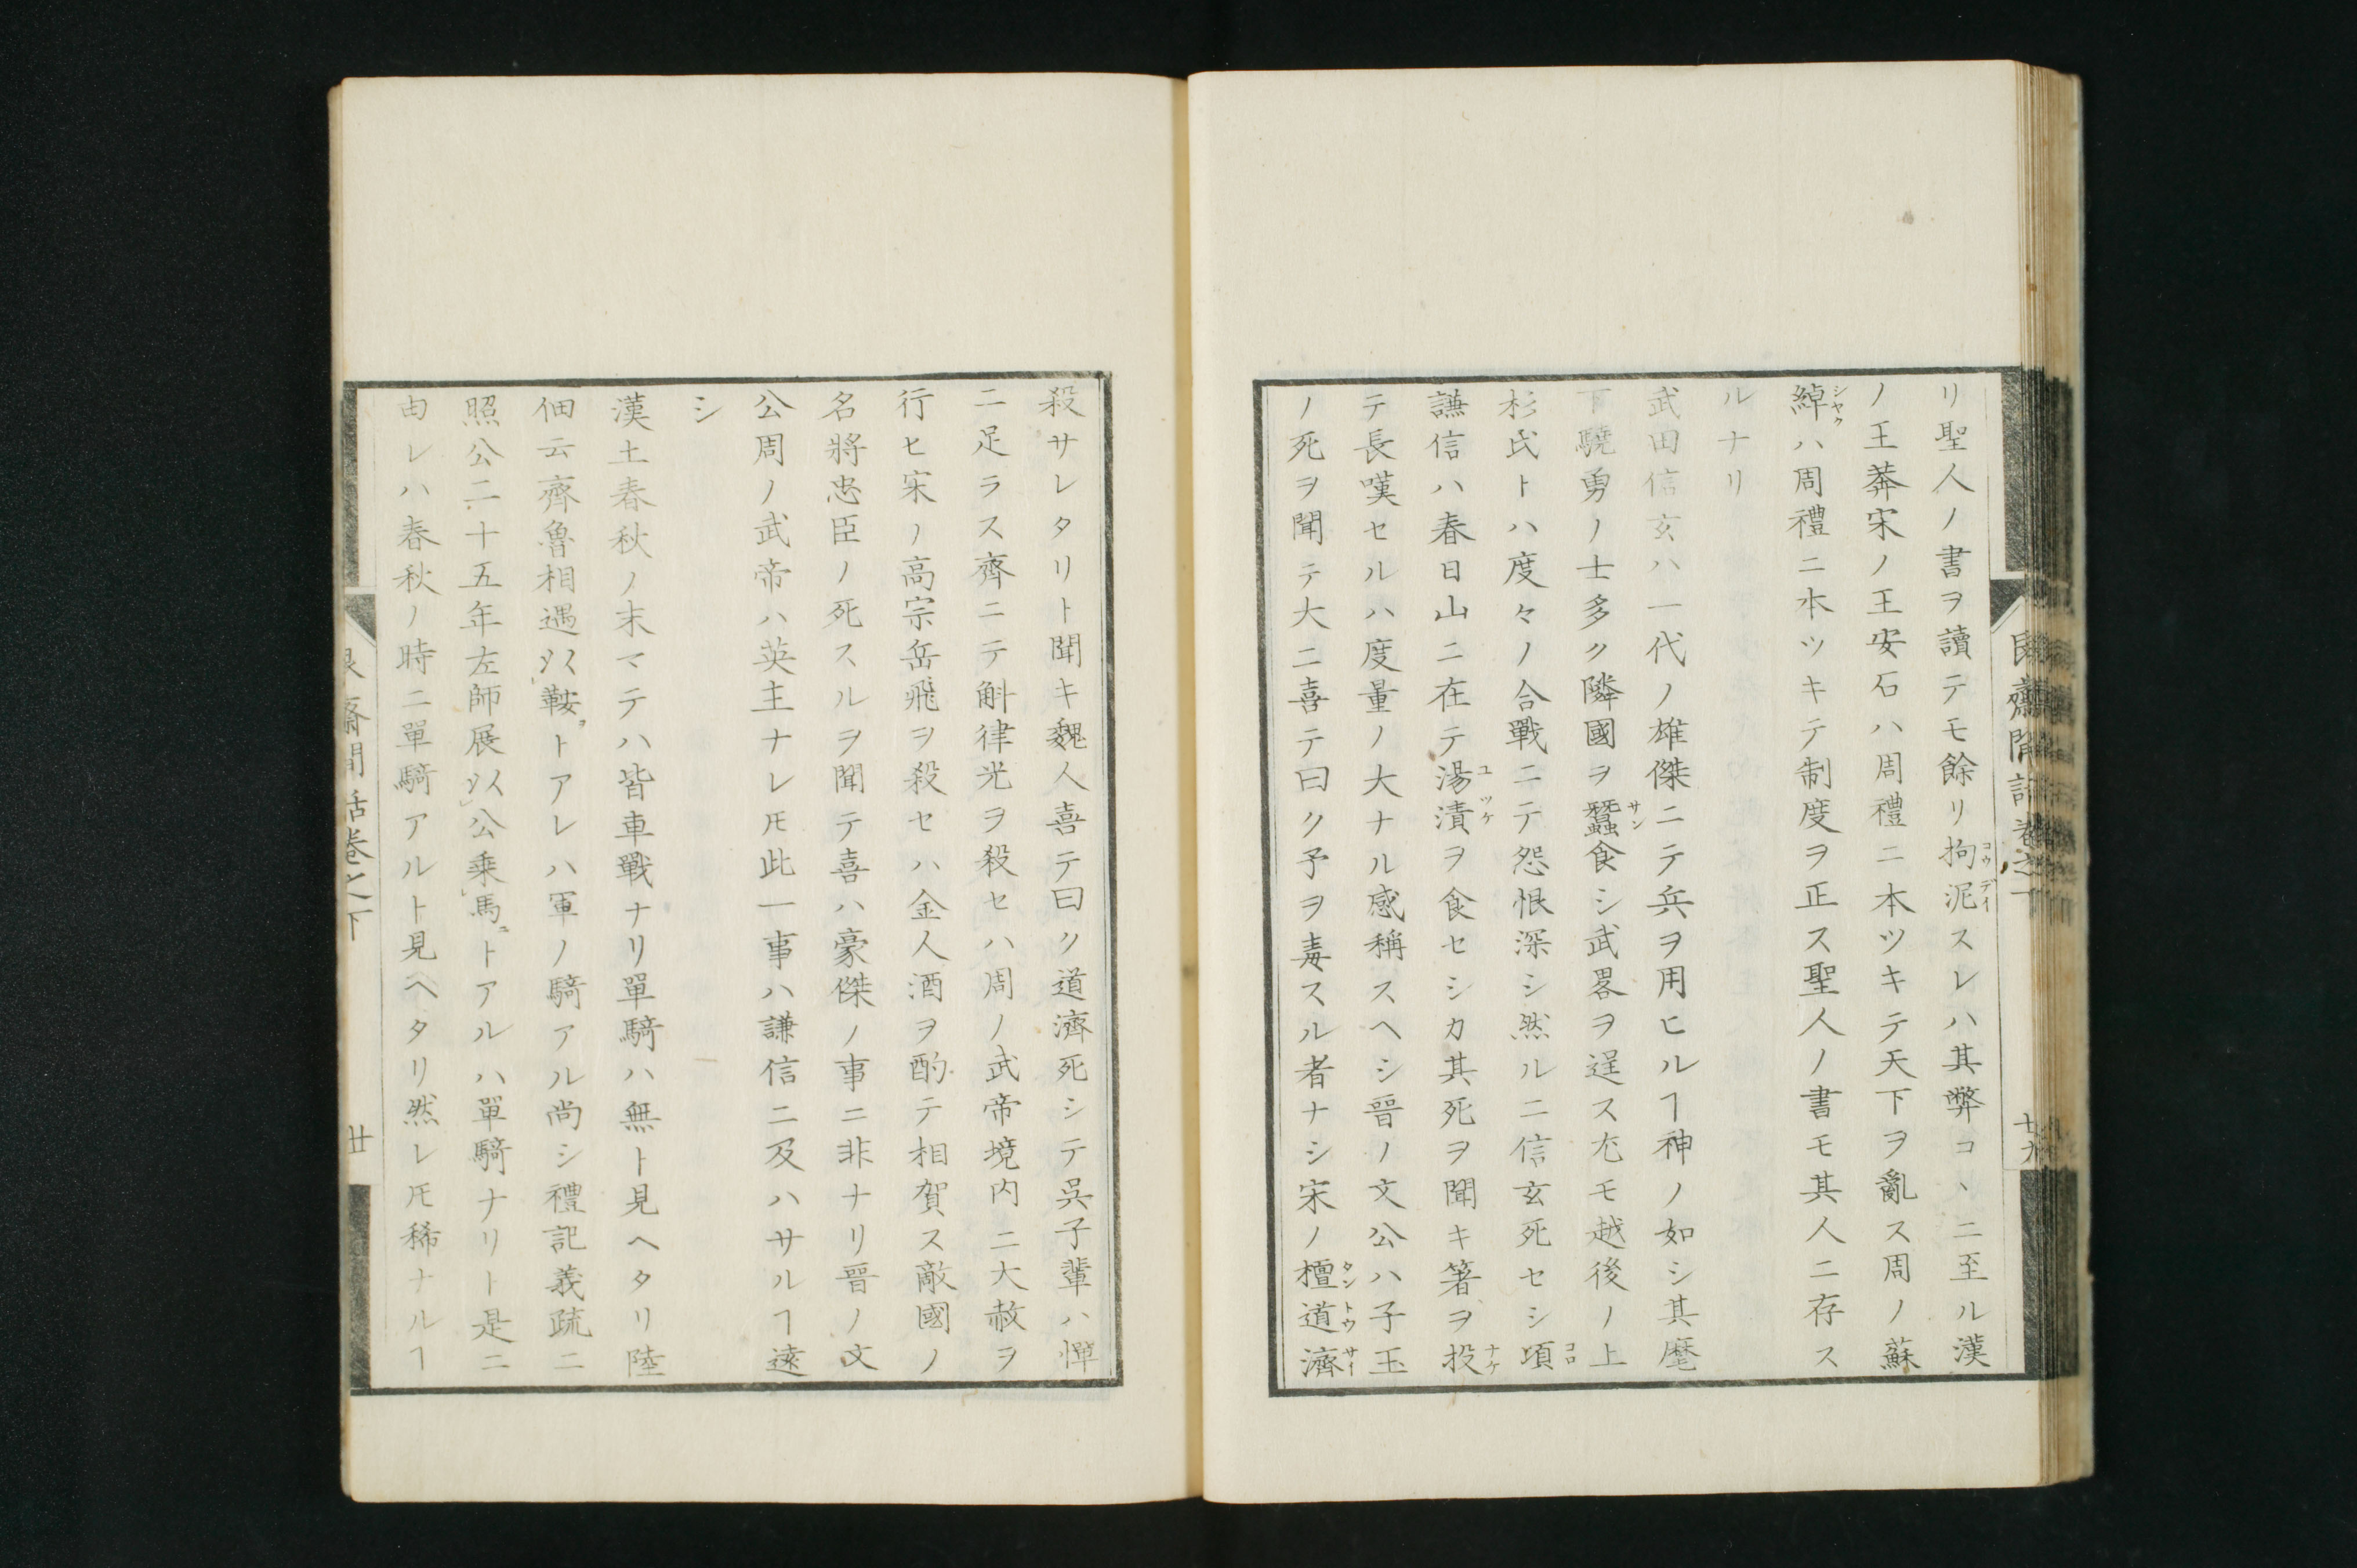 リ聖人ノ書ヲ讀テモ餘リ拘泥スレハ其弊コヽニ至ル漢
ノ王莽宋ノ王安石ハ周禮ニ本ツキテ天下ヲ亂ス周ノ蘇
綽ハ周禮ニ本ツキテ制度ヲ正ス聖人ノ書モ其人ニ存ス
ルナリ
武田信玄ハ一代ノ雄傑ニテ兵ヲ用ヒルヿ神ノ如シ其麾
下驍勇ノ士多ク隣國ヲ蠶食シ武畧ヲ逞ス尤モ越後ノ上
杉氏トハ度々ノ合戰ニテ怨恨深シ然ルニ信玄死セシ頃
謙信ハ春日山ニ在テ湯漬ヲ食セシカ其死ヲ聞キ箸ヲ投
テ長嘆セルハ度量ノ大ナル感稱スヘシ晉ノ文公ハ子玉
ノ死ヲ聞テ大ニ喜テ曰ク予ヲ毒スル者ナシ宋ノ檀道濟
殺サレタリト聞キ魏人喜テ曰ク道濟死シテ吳子輩ハ憚
ニ足ラス齊ニテ斛律光ヲ殺セハ周ノ武帝境内ニ大赦ヲ
行ヒ宋ノ高宗岳飛ヲ殺セハ金人酒ヲ酌テ相賀ス敵國ノ
名將忠臣ノ死スルヲ聞テ喜ハ豪傑ノ事ニ非ナリ晉ノ文
公周ノ武帝ハ英主ナレ𪜈此一事ハ謙信ニ及ハサルヿ遠
シ
漢土春秋ノ末マテハ皆車戰ナリ單騎ハ無ト見ヘタリ陸
佃云齊魯相遇以鞍ヲトアレハ軍ノ騎アル尚シ禮記義疏ニ
照公二十五年左師展以公乘馬ニトアルハ單騎ナリト是ニ
由レハ春秋ノ時ニ單騎アルト見ヘタリ然レ𪜈稀ナルヿ
齋間話卷之下
廿